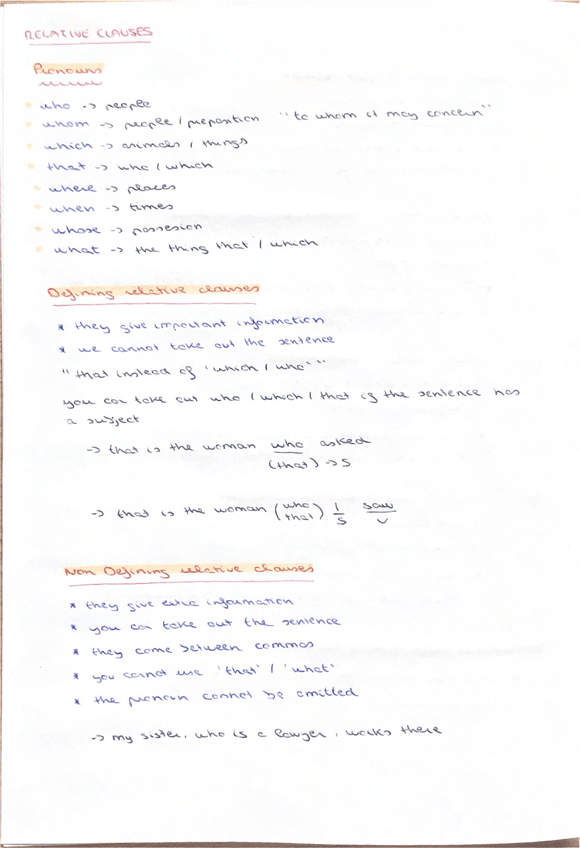 RELATIVE CLAUSES
Pronouns
who -> people
whom -> people / preposition "to whom it may concern"
which -> animals / things
that -> who / which
where -> places
when -> times
whose -> possesion
what -> the thing that / which
Defining relative clauses
* they give important information
* we cannot take out the sentence
"that instead of 'which / who'"
you can take out who / which / that if the sentence has
a subject
-> that is the woman who asked
(that) -> S
-> that is the woman (who / that) I saw
S V
Non Defining relative clauses
* they give extra information
* you can take out the sentence
* they come between commas
* you cannot use 'that' / 'what'
* the pronoun cannot be omitted
-> my sister, who is a lawyer, works there